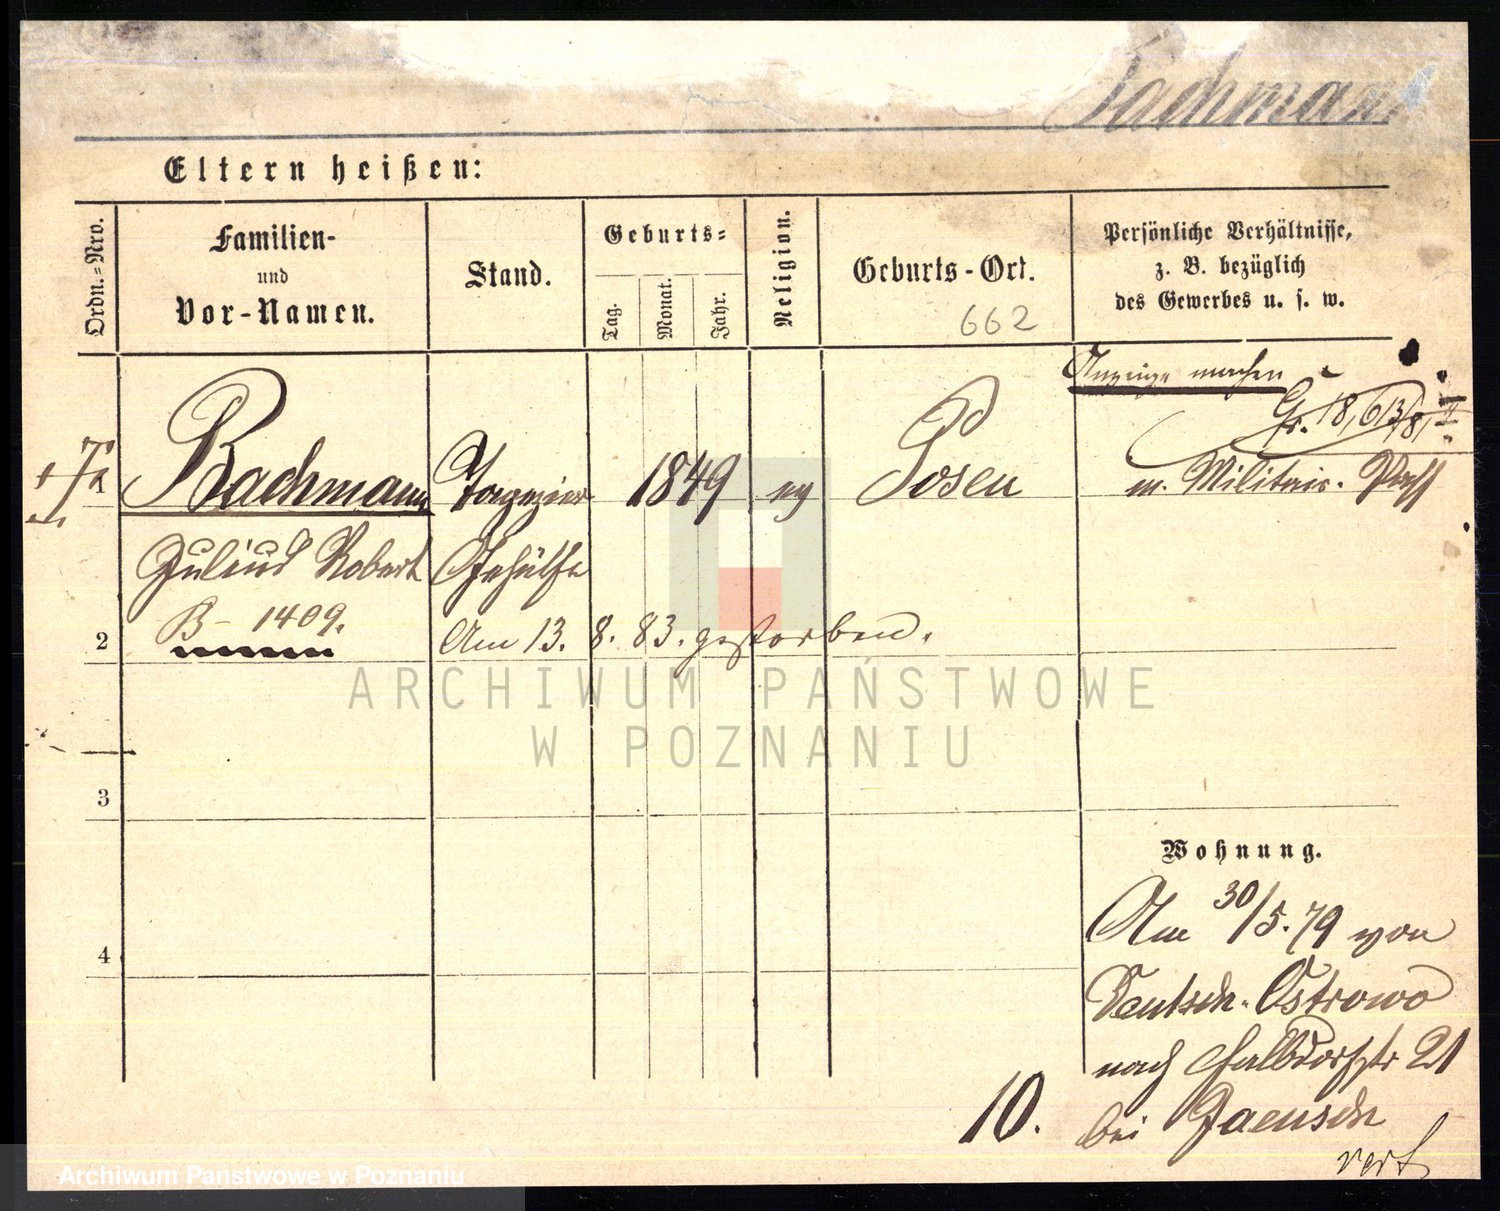 Bachmann
Eltern heißen:
Ordn.=Nro.
Familien-
und
Vor-Namen.
Stand.
Geburts=
Tag.
Monat.
Jahr.
Religion.
Geburts-Ort.
662
Persönliche Verhältnisse,
z. B. bezüglich
des Gewerbes u. s. w.
Anzeige machen
1 Bachmann Tapezier 1849 ev Posen m. Militair-Pass
Julius Robert Gehülfe
B- 1409.
2 Am 13. 8. 83. gestorben.
3
4
Wohnung.
Am 30/5.79 von
Deutsch-Ostrowo
nach Halbdorfstr 21
bei Jaensch
10.
vert
ARCHIWUM PAŃSTWOWE
W POZNANIU
Archiwum Państwowe w Poznaniu